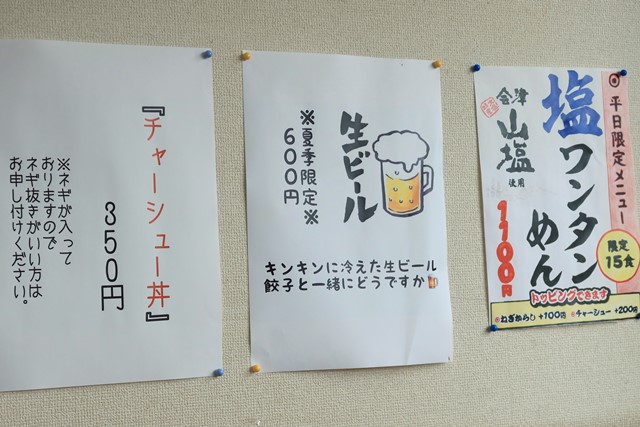 『チャーシュー丼』
350円
※ネギが入って
おりますので
ネギ抜きがいい方は
お申し付けください。
生ビール
※夏季限定※
600円
キンキンに冷えた生ビール
餃子と一緒にどうですか
平日限定メニュー
塩ワンタン
めん
会津
山塩
使用
1100円
限定
15食
トッピングできます
ねぎからし +100円 チャーシュー +200円